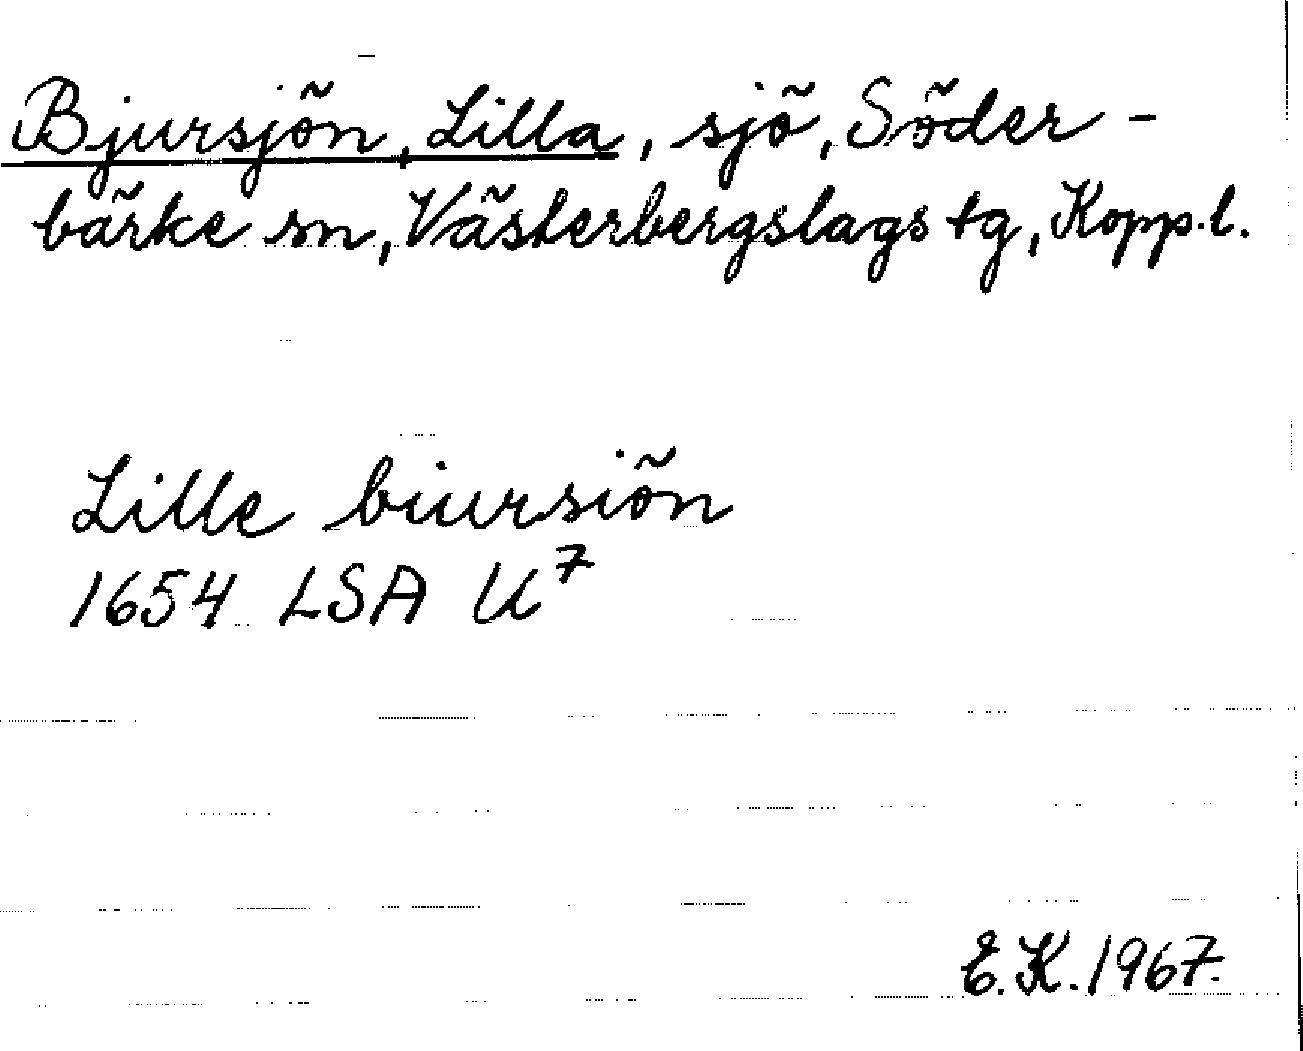 Bjursjön, Lilla, sjö, Söder-
bärke sn, Västerbergslags tg, Kopp.l.
Lille biursiön
1654 LSA U⁷
E.K. 1967.